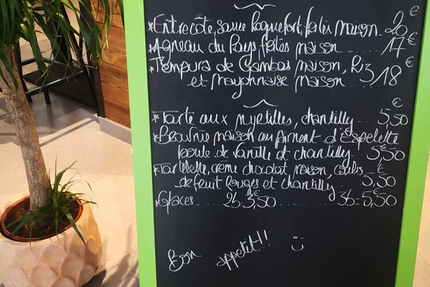 *Entrecôte, sauce Roquefort, frites maison. 20 €
*Agneau du Pays frites maison 17 €
*Tempura de Gambas maison, Riz
et Mayonnaise maison 18 €
*Tarte aux myrtilles, chantilly 5,50 €
*Brownie maison au piment d'espelette
boule de vanille et chantilly. 5,50 €
*Tartelette, crème chocolat maison, coulis
de fruit rouges et chantilly 5,50 €
Glaces 2b 3€ 3b=5,50
Bon appetit!! :)